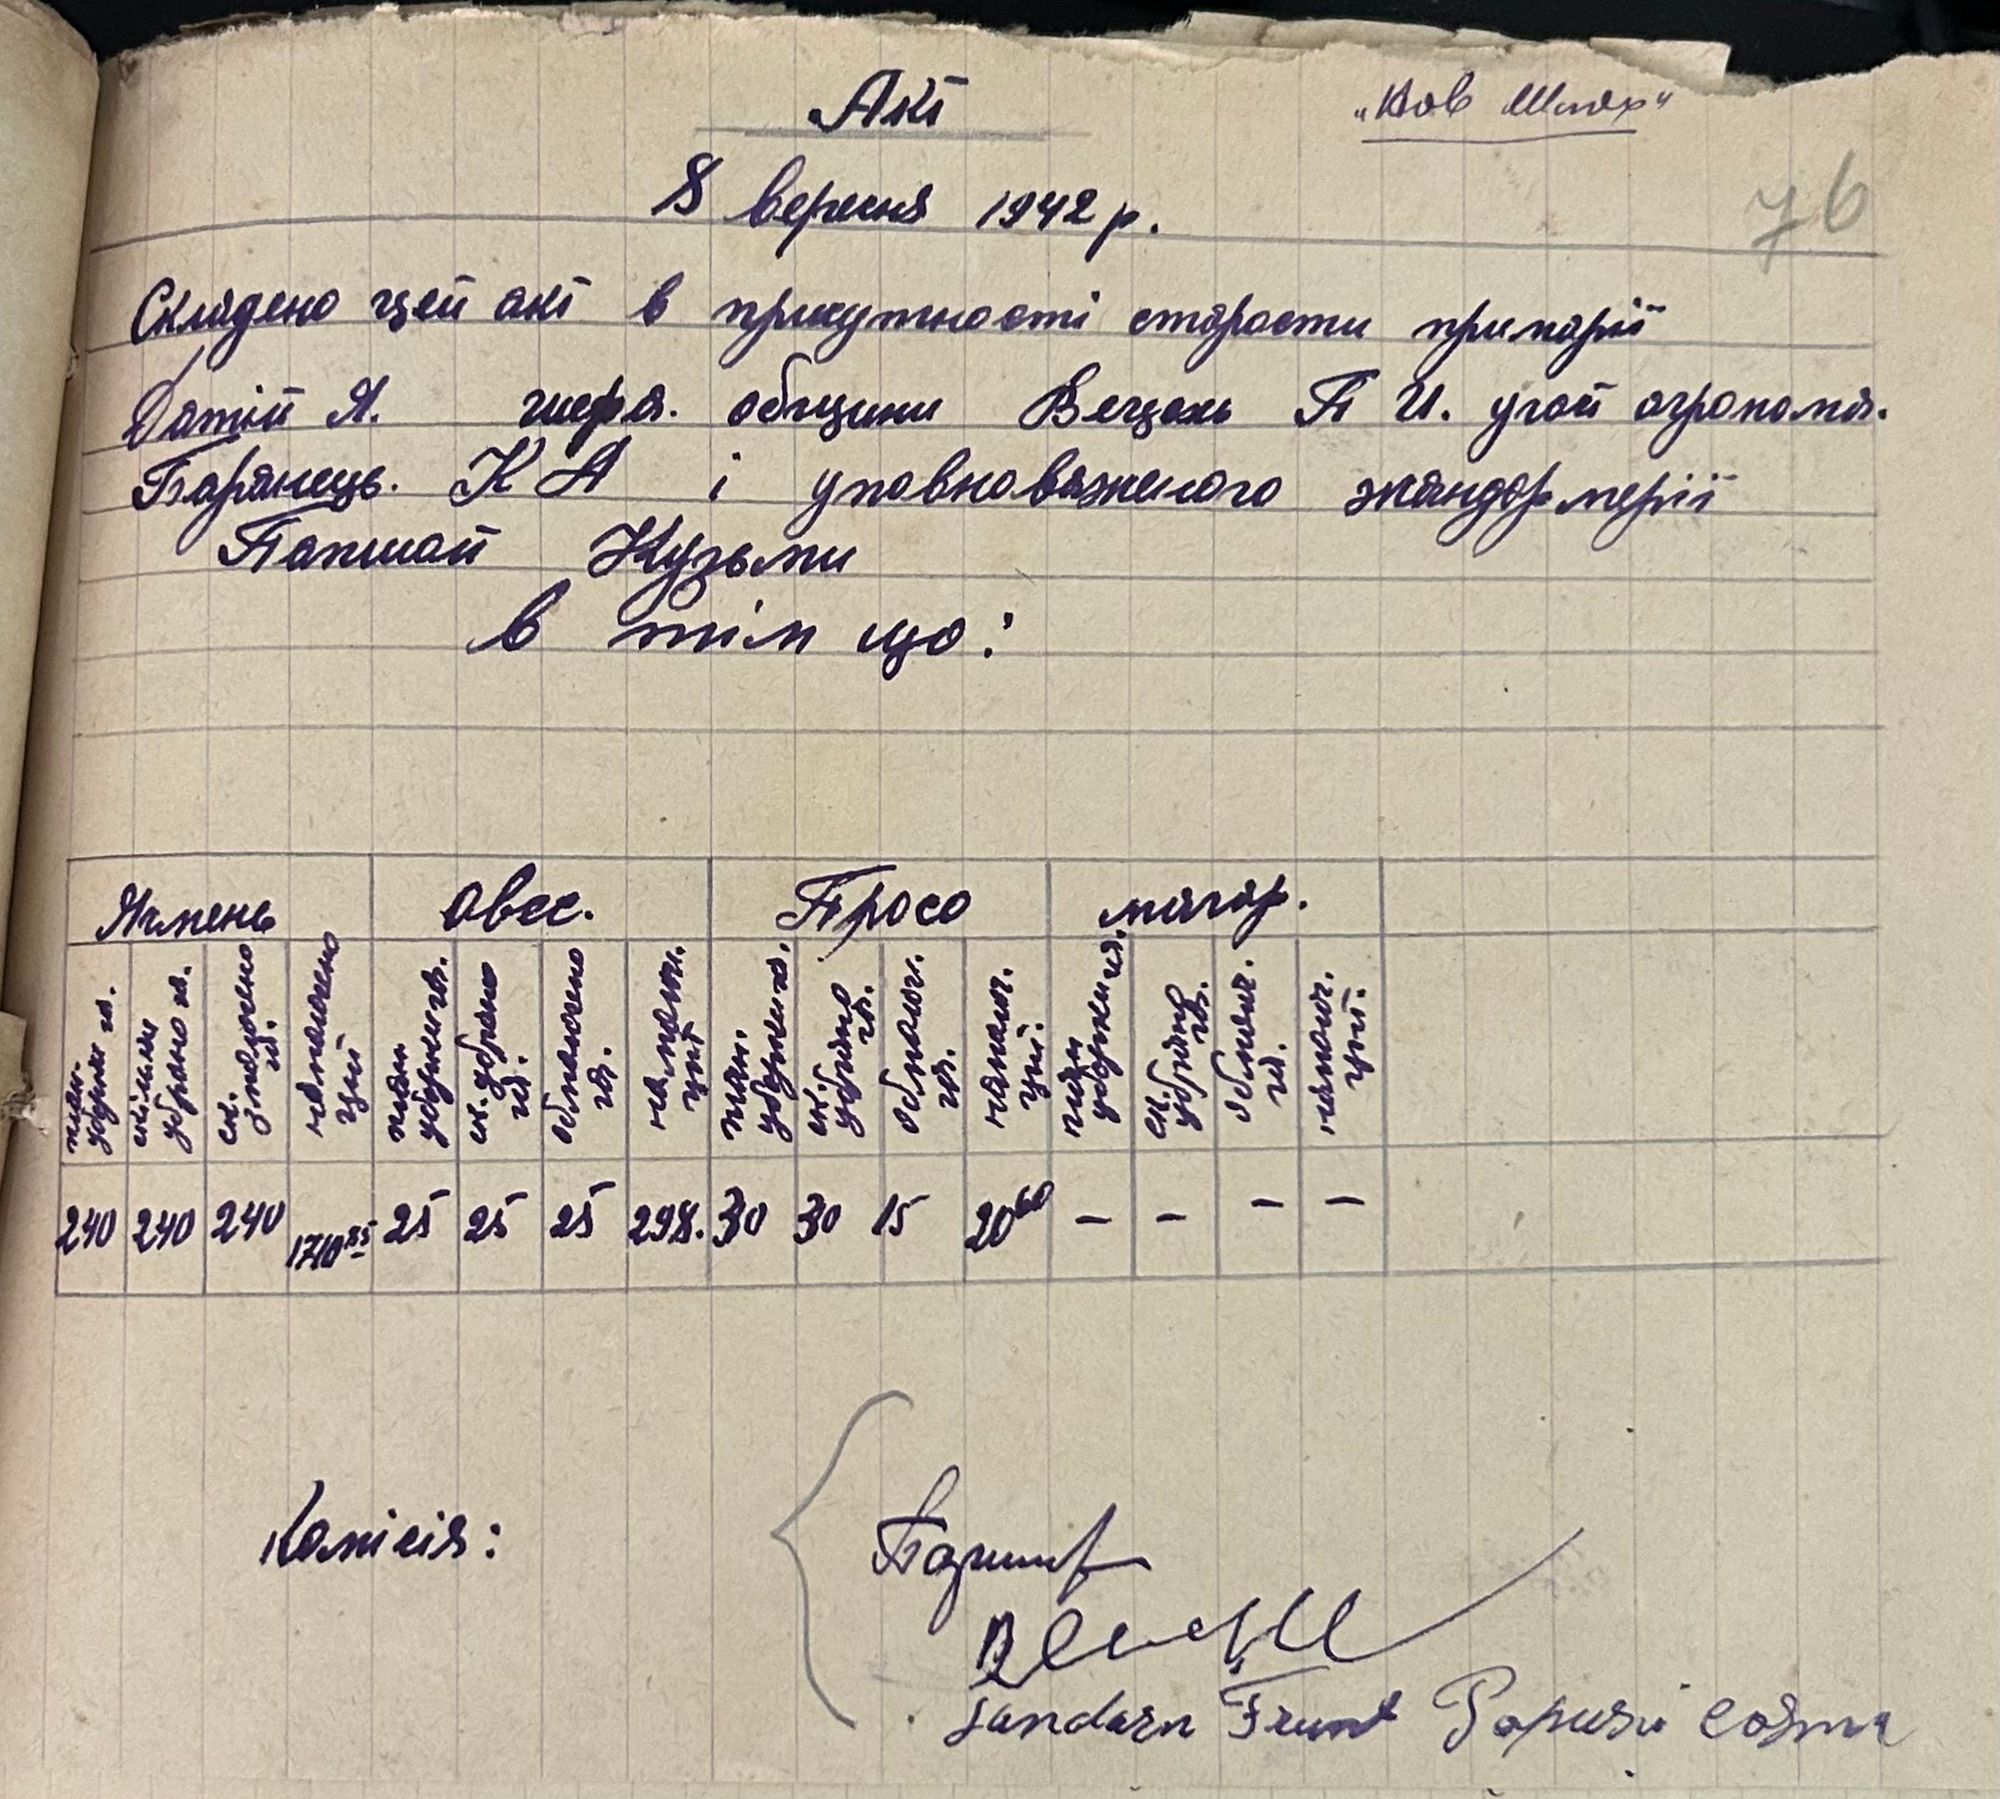 Акт
„Нов Шлях“
76
8 вересня 1942 р.
Складено цей акт в присутності старости примарії
Датій Я. общини П И. участ агронома.
Баранець. К А і уповновваженого жандормерії
Кузьми
в тім що:
Ячмень овес. Просо магар.
план убрання га. скільки убрано га. ск. змолочено га. намолочено цнт план убрання га. ск. убрано га. обмолочено га. намолоч. цнт план. убрання га. ск. убрано га. обмолоч. га. намолоч. цнт. план убрання га. ск. убрано га. обмолоч. га. намолоч. цнт.
240 240 240 1710 85 25 25 25 298. 30 30 15 20 60 — — — —
Комісія:
Jandarm Frunt Popuşoi Cosma